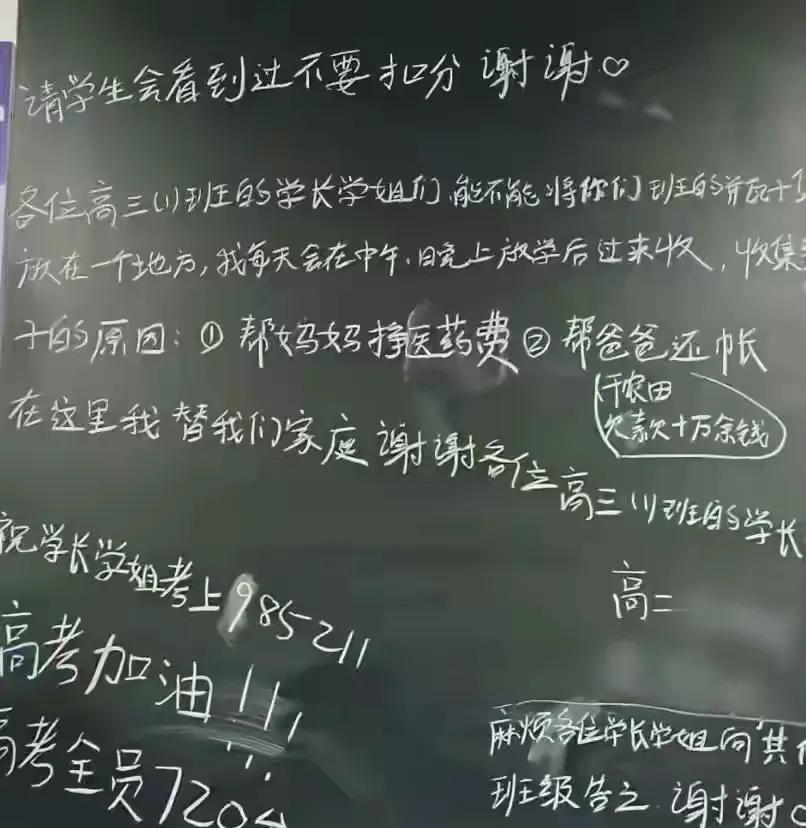 请学生会看到过不要扣分 谢谢♡
各位高三(1)班的学长学姐们,能不能将你们班的并瓦十
放在一个地方,我每天会在中午、日晚上放学后过来收,收集
子的原因:① 帮妈妈挣医药费② 帮爸爸还帐
(干农田
欠款十万余钱)
在这里我替我们家庭谢谢各位高三(1)班的学长
高二
祝学长学姐考上985211
高考加油!!!
高考全员720
麻烦各位学长学姐向其
班级告之 谢谢♡